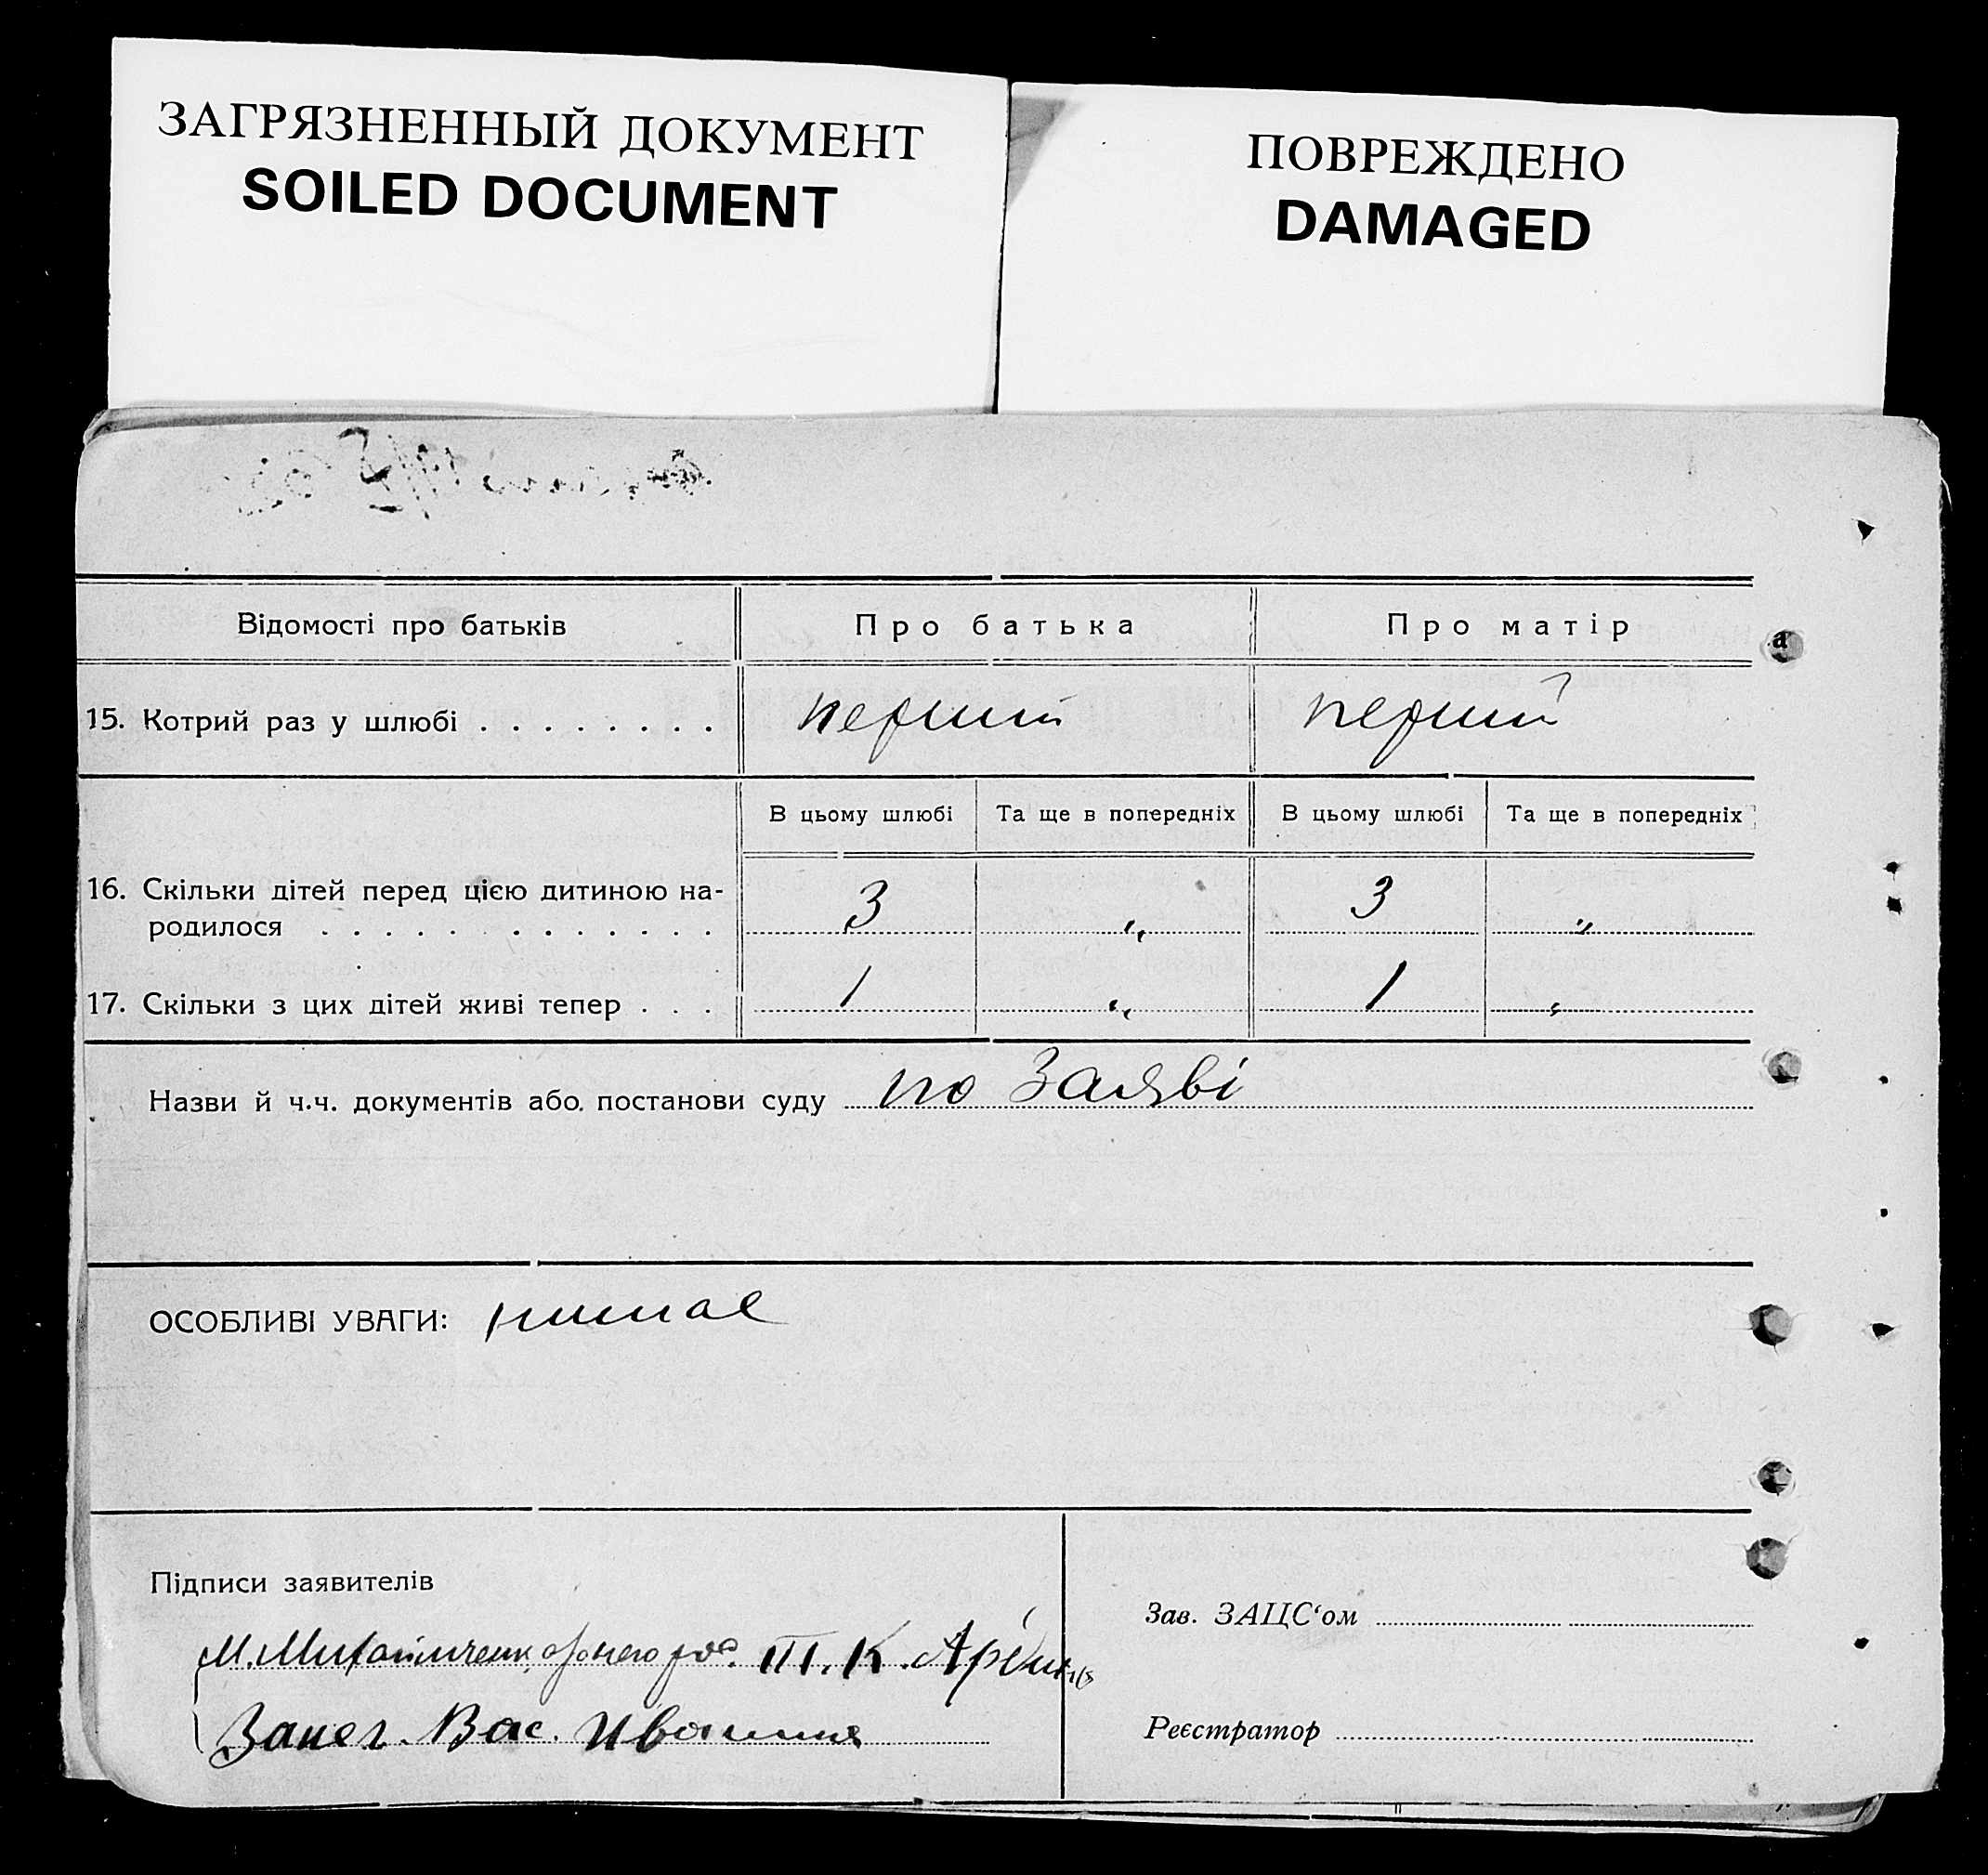 ЗАГРЯЗНЕННЫЙ ДОКУМЕНТ
SOILED DOCUMENT
ПОВРЕЖДЕНО
DAMAGED
Відомості про батьків Про батька Про матір
а
15. Котрий раз у шлюбі . . . . . . . . перший перший
В цьому шлюбі Та ще в попередніх В цьому шлюбі Та ще в попередніх
16. Скільки дітей перед цією дитиною на-
родилося . . . . . . . . . . . . . 3 „ 3 „
17. Скільки з цих дітей живі тепер . . . 1 „ 1 „
Назви й ч.ч. документів або постанови суду по Заяві
ОСОБЛИВІ УВАГИ: нимае
Підписи заявителів
М. Михайличенк III. К.
Вас.
Зав. ЗАЦС‘ом
Реєстратор